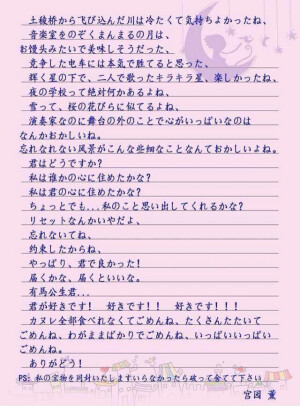 土稜橋から飛び込んだ川は冷たくて気持ちよかったね、
音楽室をのぞくまんまるの月は、
お饅頭みたいで美味しそうだった、
競争した電车には本気で胜てると思った、
輝く星の下で、二人で歌ったキラキラ星、楽しかったね、
夜の学校って絶対何かあるよね、
雪って、桜の花びらに似てるよね、
演奏家なのに舞台の外のことで心がいっぱいなのは
なんかおかしいね。
忘れなれない風景がこんな些細なことなんておかしいよね。
君はどうですか？
私は誰かの心に住めたかな？
私は君の心に住めたかな？
ちょっとでも...私のこと思い出してくれるかな？
リセットなんかいやだよ、
忘れないてね、
約束したからね、
やっぱり、君で良かった！
届くかな、届くといいな。
有馬公生君...
君が好きです！ 好きです！！ 好きです！！！
カヌレ全部食べれなくてごめんね、たくさんたたいて
ごめんね、わがままばかりでごめんね、いっぱいいっぱい
ごめんね。
ありがとう！
PS: 私の宝物を同封いたしますいらなかったら破って舍てて下さい
宮园 薫